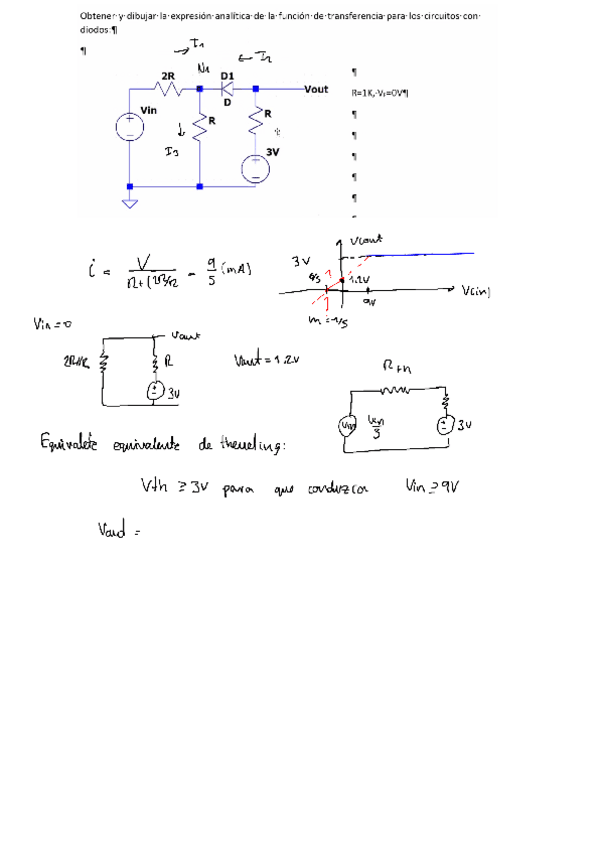 Obtener y dibujar la expresión analítica de la función de transferencia para los circuitos con
diodos:¶
¶
I1
N1
I2
2R
D1
Vout
D
Vin
R
R
I3
3V
¶
R=1K, Vt=0V¶
¶
¶
¶
¶
¶
i = V
= 9/5 (mA)
Vout
3V
1.2V
9V
V(in)
Vin = 0
Vout
R
3V
Vout = 1.2V
Rth
Vin/3
3V
equivalente de thevening:
Vth ≥ 3V para que conduzca Vin ≥ 9V
=